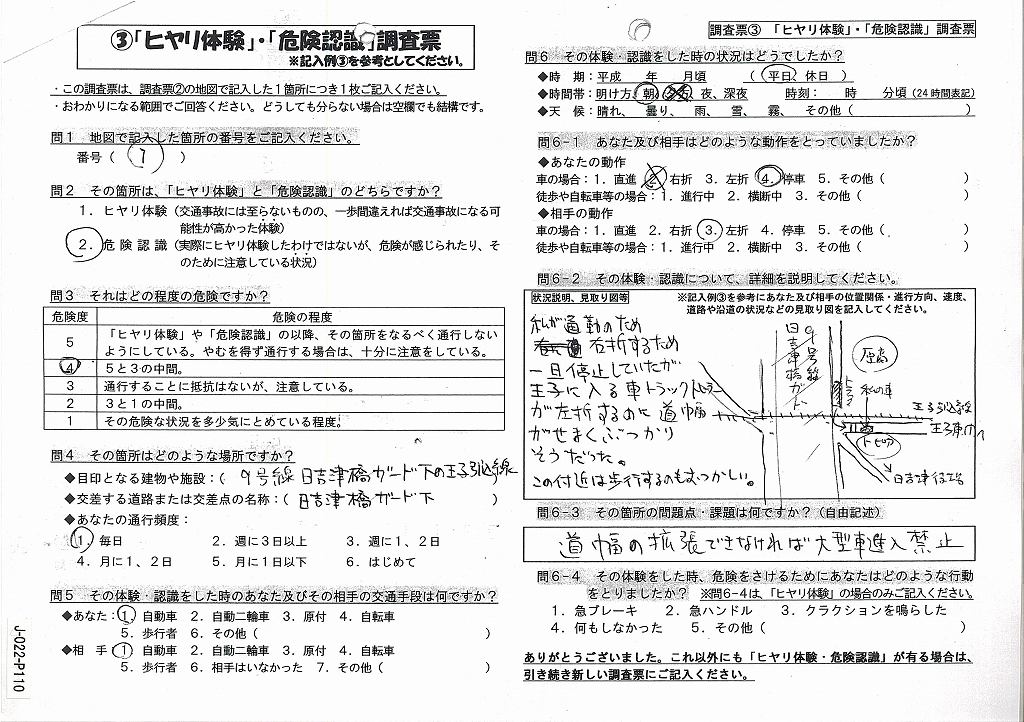 ③「ヒヤリ体験」・「危険認識」調査票
※記入例③を参考としてください。
・この調査票は、調査票②の地図で記入した１箇所につき１枚ご記入ください。
・おわかりになる範囲でご回答ください。どうしても分らない場合は空欄でも結構です。
問１ 地図で記入した箇所の番号をご記入ください。
番号（ 1 ）
問２ その箇所は、「ヒヤリ体験」と「危険認識」のどちらですか？
１．ヒヤリ体験（交通事故には至らないものの、一歩間違えれば交通事故になる可
能性が高かった体験）
２．危険認識（実際にヒヤリ体験したわけではないが、危険が感じられたり、そ
のために注意している状況）
問３ それはどの程度の危険ですか？
危険度 危険の程度
５ 「ヒヤリ体験」や「危険認識」の以降、その箇所をなるべく通行しない
ようにしている。やむを得ず通行する場合は、十分に注意をしている。
４ ５と３の中間。
３ 通行することに抵抗はないが、注意している。
２ ３と１の中間。
１ その危険な状況を多少気にとめている程度。
問４ その箇所はどのような場所ですか？
◆目印となる建物や施設：（ 9号線 日吉津橋ガード下の王子引込線 ）
◆交差する道路または交差点の名称：（ 日吉津橋ガード下 ）
◆あなたの通行頻度：
１．毎日 ２．週に３日以上 ３．週に１、２日
４．月に１、２日 ５．月に１日以下 ６．はじめて
問５ その体験・認識をした時のあなた及びその相手の交通手段は何ですか？
◆あなた：１．自動車 ２．自動二輪車 ３．原付 ４．自転車
５．歩行者 ６．その他（ ）
◆相 手：１．自動車 ２．自動二輪車 ３．原付 ４．自転車
５．歩行者 ６．相手はいなかった ７．その他（ ）
J-022-P110
調査票③ 「ヒヤリ体験」・「危険認識」調査票
問６ その体験・認識をした時の状況はどうでしたか？
◆時 期：平成 年 月頃 （ 平日、休日 ）
◆時間帯：明け方、朝、 夜、深夜 時刻： 時 分頃（24時間表記）
◆天 候：晴れ、 曇り、 雨、 雪、 霧、 その他（ ）
問６-１ あなた及び相手はどのような動作をとっていましたか？
◆あなたの動作
車の場合：１．直進 ２．右折 ３．左折 ４．停車 ５．その他（ ）
徒歩や自転車等の場合：１．進行中 ２．横断中 ３．その他（ ）
◆相手の動作
車の場合：１．直進 ２．右折 ３．左折 ４．停車 ５．その他（ ）
徒歩や自転車等の場合：１．進行中 ２．横断中 ３．その他（ ）
問６-２ その体験・認識について、詳細を説明してください。
状況説明、見取り図等
※記入例③を参考にあなた及び相手の位置関係・進行方向、速度、
道路や沿道の状況などの見取り図を記入してください。
私が通勤のため
右折するため
一旦停止していたが
王子に入る車トラック
が左折するのに道幅
がせまくぶつかり
そうだった。
この付近は歩行するのもむつかしい。
9号線
日吉津橋ガード
私の車
王子引込線
日吉津役場
問６-３ その箇所の問題点・課題は何ですか？（自由記述）
道幅の拡張できなければ大型車進入禁止
問６-４ その体験をした時、危険をさけるためにあなたはどのような行動
をとりましたか？ ※問６-４は、「ヒヤリ体験」の場合のみご記入ください。
１．急ブレーキ ２．急ハンドル ３．クラクションを鳴らした
４．何もしなかった ５．その他（ ）
ありがとうございました。これ以外にも「ヒヤリ体験・危険認識」が有る場合は、
引き続き新しい調査票にご記入ください。